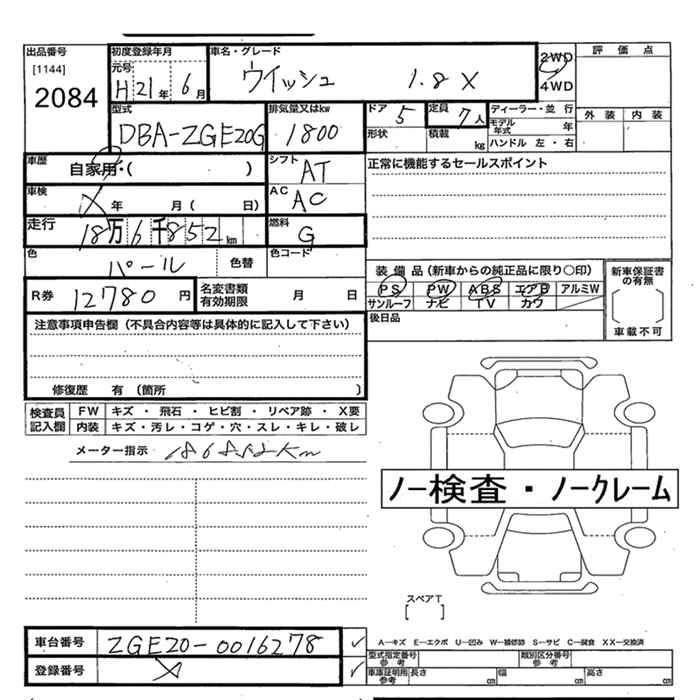 出品番号 初度登録年月 車名・グレード 2WD 評価点
[1144] 元号 H 21年 6月 ウイッシュ 1.8 X 4WD
2084
型式 排気量又はkw ドア 5 定員 7人 ディーラー・並行 外装 内装
DBA-ZGE20G 1800 形状 積載 kg モデル年式 年
ハンドル 左・右
車歴 自家用・( ) シフト AT 正常に機能するセールスポイント
車検 X 年 月 ( 日) AC AC
走行 18万6千852km 燃料 G
色 パール 色替 色コード 装備品(新車からの純正品に限り○印) 新車保証書の有無
R券 12780円 名変書類有効期限 月 日 PS PW ABS エアB アルミW
サンルーフ ナビ TV カワ [ ]
後日品 車載不可
注意事項申告欄(不具合内容等は具体的に記入して下さい)
修復歴 有(箇所 )
検査員記入欄 FW キズ・飛石・ヒビ割・リペア跡・X要
内装 キズ・汚レ・コゲ・穴・スレ・キレ・破レ
メーター指示 186852Km
ノー検査・ノークレーム
スペアT
[ ]
車台番号 ZGE20-0016278 ✓ A—キズ E—エクボ U—凹み W—補修跡 S—サビ C—腐食 XX—交換済
登録番号 X ✓ 型式指定番号 参考 類別区分番号 参考
車庫証明用 参考 長さ cm 幅 cm 高さ cm